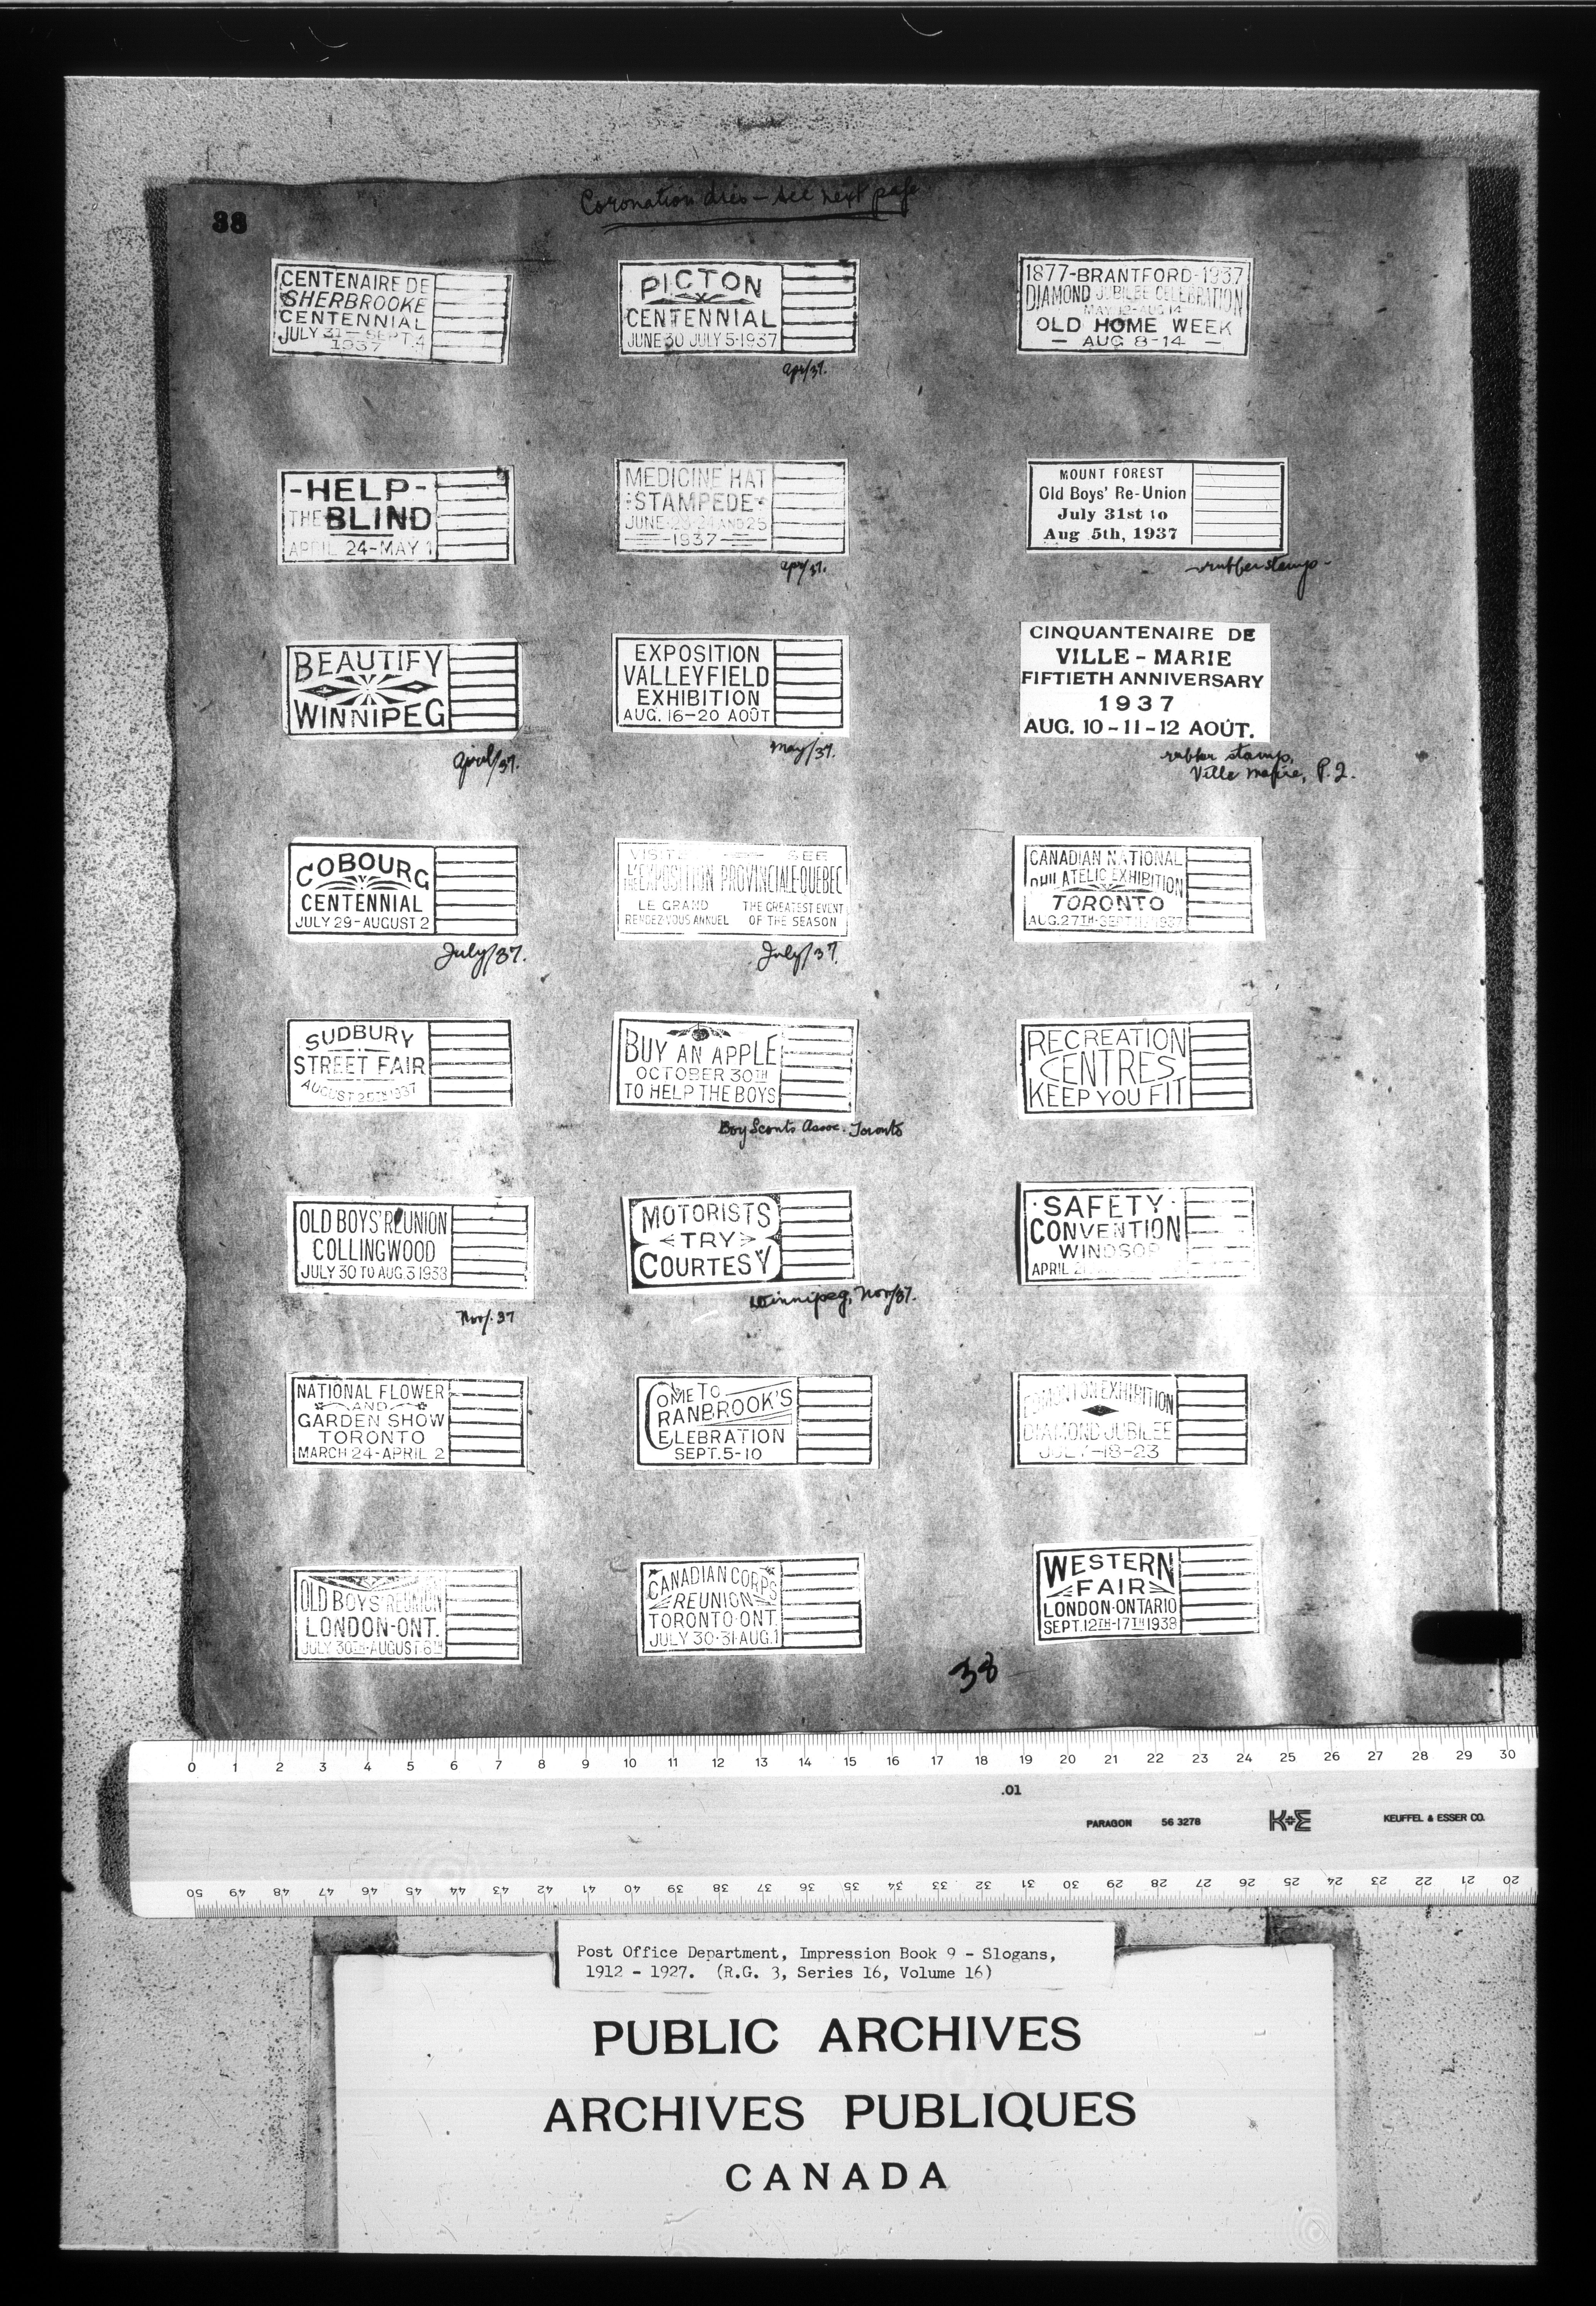 Coronation dies - see next page
38
CENTENAIRE DE
SHERBROOKE
CENTENNIAL
JULY 31 - SEPT. 4
1937
PICTON
CENTENNIAL
JUNE 30 JULY 5·1937
Apr/37.
1877-BRANTFORD-1937
DIAMOND JUBILEE CELEBRATION
MAY 12-AUG 14
OLD HOME WEEK
- AUG 8-14 -
-HELP-
THE BLIND
APRIL 24-MAY 1
MEDICINE HAT
STAMPEDE
JUNE 23 24 AND 25
1937
Apr/37.
MOUNT FOREST
Old Boys' Re-Union
July 31st to
Aug 5th, 1937
-rubber stamp-
BEAUTIFY
WINNIPEG
April/37.
EXPOSITION
VALLEYFIELD
EXHIBITION
AUG. 16-20 AOÛT
May/37.
CINQUANTENAIRE DE
VILLE - MARIE
FIFTIETH ANNIVERSARY
1937
AUG. 10-11-12 AOÛT.
rubber stamp,
Ville Marie, P.Q.
COBOURG
CENTENNIAL
JULY 29-AUGUST 2
July/37.
VISITEZ SEE
L'EXPOSITION PROVINCIALE QUEBEC
LE GRAND THE GREATEST EVENT
RENDEZ VOUS ANNUEL OF THE SEASON
July/37.
CANADIAN NATIONAL
PHILATELIC EXHIBITION
TORONTO
AUG. 27TH-SEPT 1937
SUDBURY
STREET FAIR
AUGUST 25TH 1937
BUY AN APPLE
OCTOBER 30TH
TO HELP THE BOYS
Boy Scouts Assoc. Toronto
RECREATION
CENTRES
KEEP YOU FIT
OLD BOYS' REUNION
COLLINGWOOD
JULY 30 TO AUG. 3 1938
Nov/. 37
MOTORISTS
TRY
COURTESY
Winnipeg, Nov/37.
·SAFETY·
CONVENTION
WINDSOR
APRIL
NATIONAL FLOWER
AND
GARDEN SHOW
TORONTO
MARCH 24-APRIL 2
COME TO
CRANBROOK'S
CELEBRATION
SEPT. 5-10
EDMONTON EXHIBITION
DIAMOND JUBILEE
JULY-18-23
OLD BOYS REUNION
LONDON-ONT.
JULY 30TH-AUGUST 6TH
CANADIAN CORPS
REUNION
TORONTO·ONT
JULY 30·31·AUG. 1
WESTERN
FAIR
LONDON·ONTARIO
SEPT. 12TH-17TH 1938
38
0 1 2 3 4 5 6 7 8 9 10 11 12 13 14 15 16 17 18 19 20 21 22 23 24 25 26 27 28 29 30
.01
PARAGON 56 3278 K+E KEUFFEL & ESSER CO.
50 49 48 47 46 45 44 43 42 41 40 39 38 37 36 35 34 33 32 31 30 29 28 27 26 25 24 23 22 21 20
Post Office Department, Impression Book 9 - Slogans,
1912 - 1927. (R.G. 3, Series 16, Volume 16)
PUBLIC ARCHIVES
ARCHIVES PUBLIQUES
CANADA